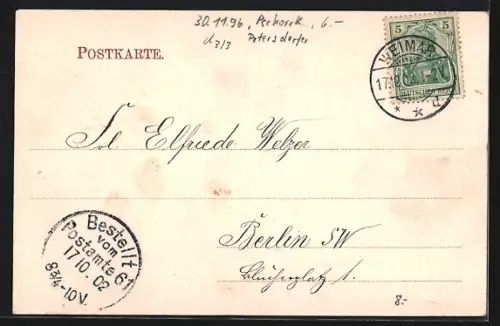 30.11.96, 6.-
d 3/3 Petersdorfer
POSTKARTE.
5 5
WEIMAR
17.10.02
* * d
Frl. Elfriede Welzer
Bestellt
vom
Postamte 61
17 10. 02
8 3/4 - 10 V.
Berlin SW
Blücherplatz 1.
8.-